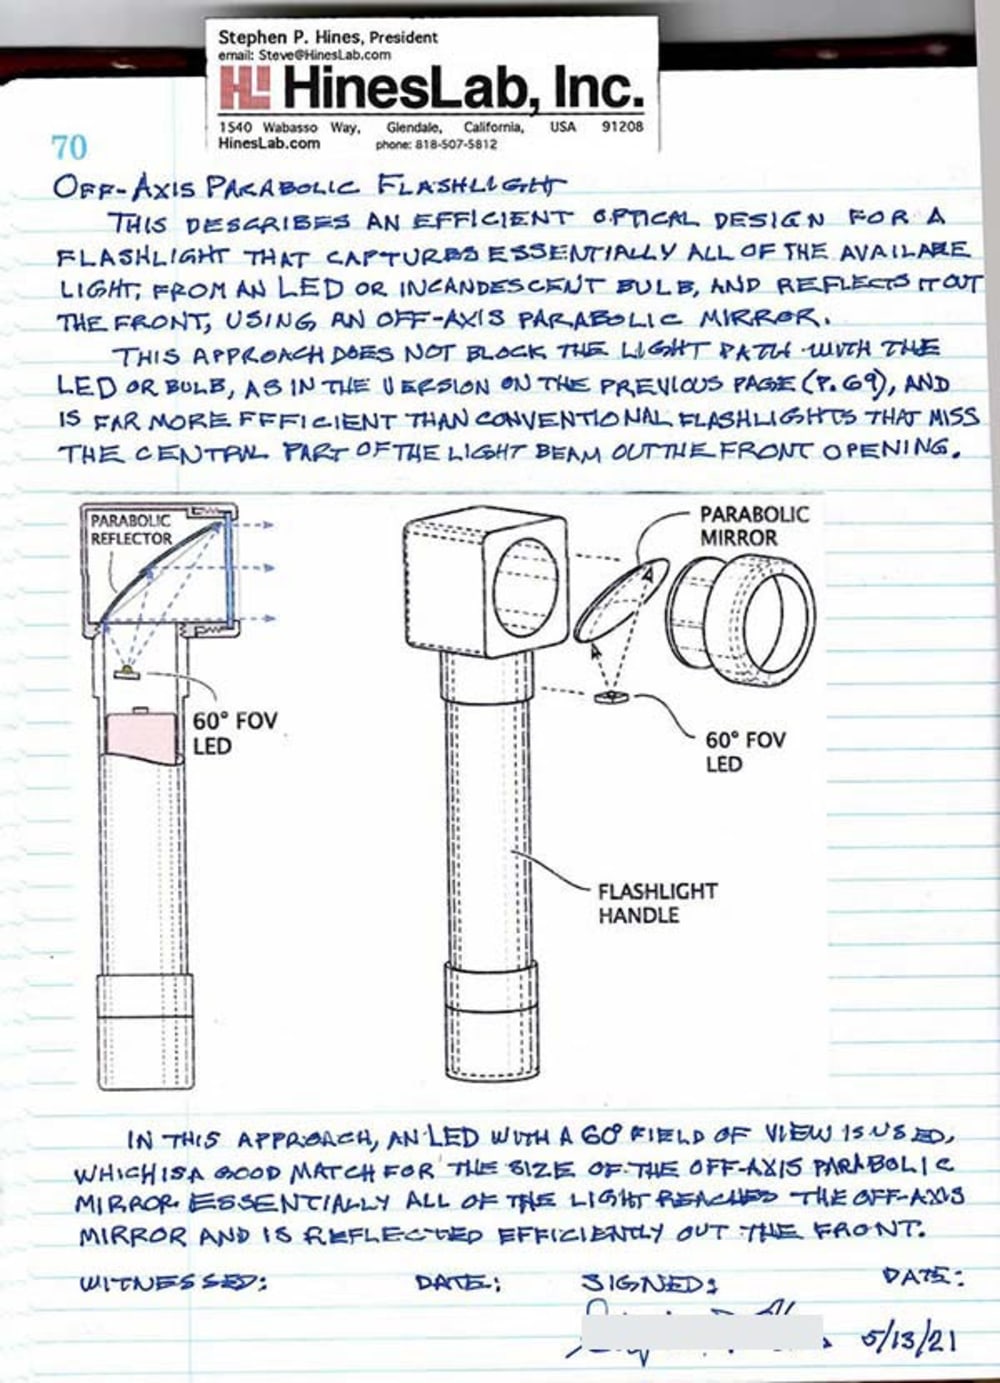 Stephen P. Hines, President
email: Steve@HinesLab.com
HL! HinesLab, Inc.
1540 Wabasso Way, Glendale, California, USA 91208
HinesLab.com phone: 818-507-5812
70
OFF-AXIS PARABOLIC FLASHLIGHT
THIS DESCRIBES AN EFFICIENT OPTICAL DESIGN FOR A
FLASHLIGHT THAT CAPTURES ESSENTIALLY ALL OF THE AVAILABLE
LIGHT, FROM AN LED OR INCANDESCENT BULB, AND REFLECTS IT OUT
THE FRONT, USING AN OFF-AXIS PARABOLIC MIRROR.
THIS APPROACH DOES NOT BLOCK THE LIGHT PATH WITH THE
LED OR BULB, AS IN THE VERSION ON THE PREVIOUS PAGE (P. 69), AND
IS FAR MORE EFFICIENT THAN CONVENTIONAL FLASHLIGHTS THAT MISS
THE CENTRAL PART OF THE LIGHT BEAM OUT THE FRONT OPENING.
PARABOLIC
REFLECTOR
60° FOV
LED
PARABOLIC
MIRROR
60° FOV
LED
FLASHLIGHT
HANDLE
IN THIS APPROACH, AN LED WITH A 60° FIELD OF VIEW IS USED,
WHICH IS A GOOD MATCH FOR THE SIZE OF THE OFF-AXIS PARABOLIC
MIRROR. ESSENTIALLY ALL OF THE LIGHT REACHES THE OFF-AXIS
MIRROR AND IS REFLECTED EFFICIENTLY OUT THE FRONT.
WITNESSED: DATE: SIGNED: DATE:
5/13/21